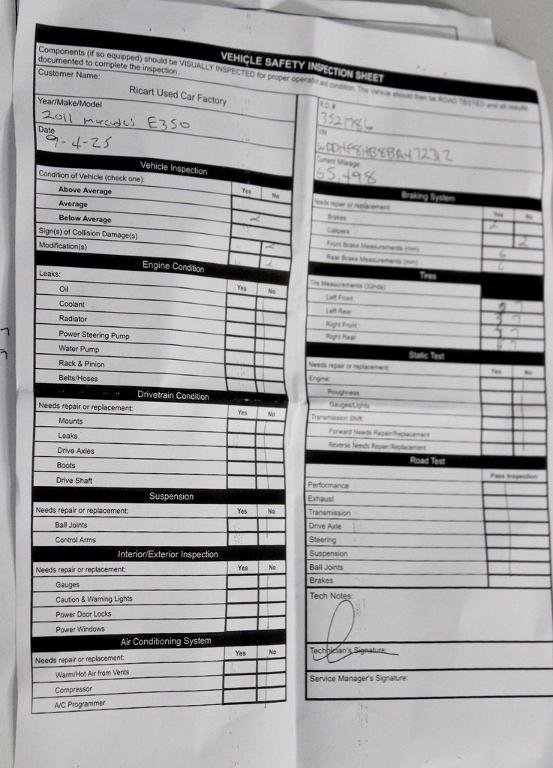 VEHICLE SAFETY INSPECTION SHEET
Components (if so equipped) should be VISUALLY INSPECTED for proper operation and condition. The Vehicle should then be ROAD TESTED and all results
documented to complete the inspection.
Customer Name:
Ricart Used Car Factory
Year/Make/Model
2011 Mercedes E350
Date
9-4-25
Vehicle Inspection
Condition of Vehicle (check one):
Yes No
Above Average
Average
Below Average
Sign(s) of Collision Damage(s)
Modification(s)
Engine Condition
Leaks:
Yes No
Oil
Coolant
Radiator
Power Steering Pump
Water Pump
Rack & Pinion
Belts/Hoses
Drivetrain Condition
Needs repair or replacement:
Yes No
Mounts
Leaks
Drive Axles
Boots
Drive Shaft
Suspension
Needs repair or replacement:
Yes No
Ball Joints
Control Arms
Interior/Exterior Inspection
Needs repair or replacement:
Yes No
Gauges
Caution & Warning Lights
Power Door Locks
Power Windows
Air Conditioning System
Needs repair or replacement:
Yes No
Warm/Hot Air from Vents
Compressor
A/C Programmer
R.O.#
352786
VIN
Current Mileage
65,498
Braking System
Needs repair or replacement:
Yes No
Brakes
Calipers
Front Brake Measurements (mm)
6
Rear Brake Measurements (mm)
Tires
Tire Measurements (32nds)
Left Front
7
Left Rear
7
Right Front
7
Right Rear
7
Static Test
Needs repair or replacement:
Yes No
Engine:
Roughness
Gauges/Lights
Transmission Shift:
Forward Needs Repair/Replacement
Reverse Needs Repair/Replacement
Road Test
Pass Inspection
Performance
Exhaust
Transmission
Drive Axle
Steering
Suspension
Ball Joints
Brakes
Tech Notes:
Technician's Signature:
Service Manager's Signature: